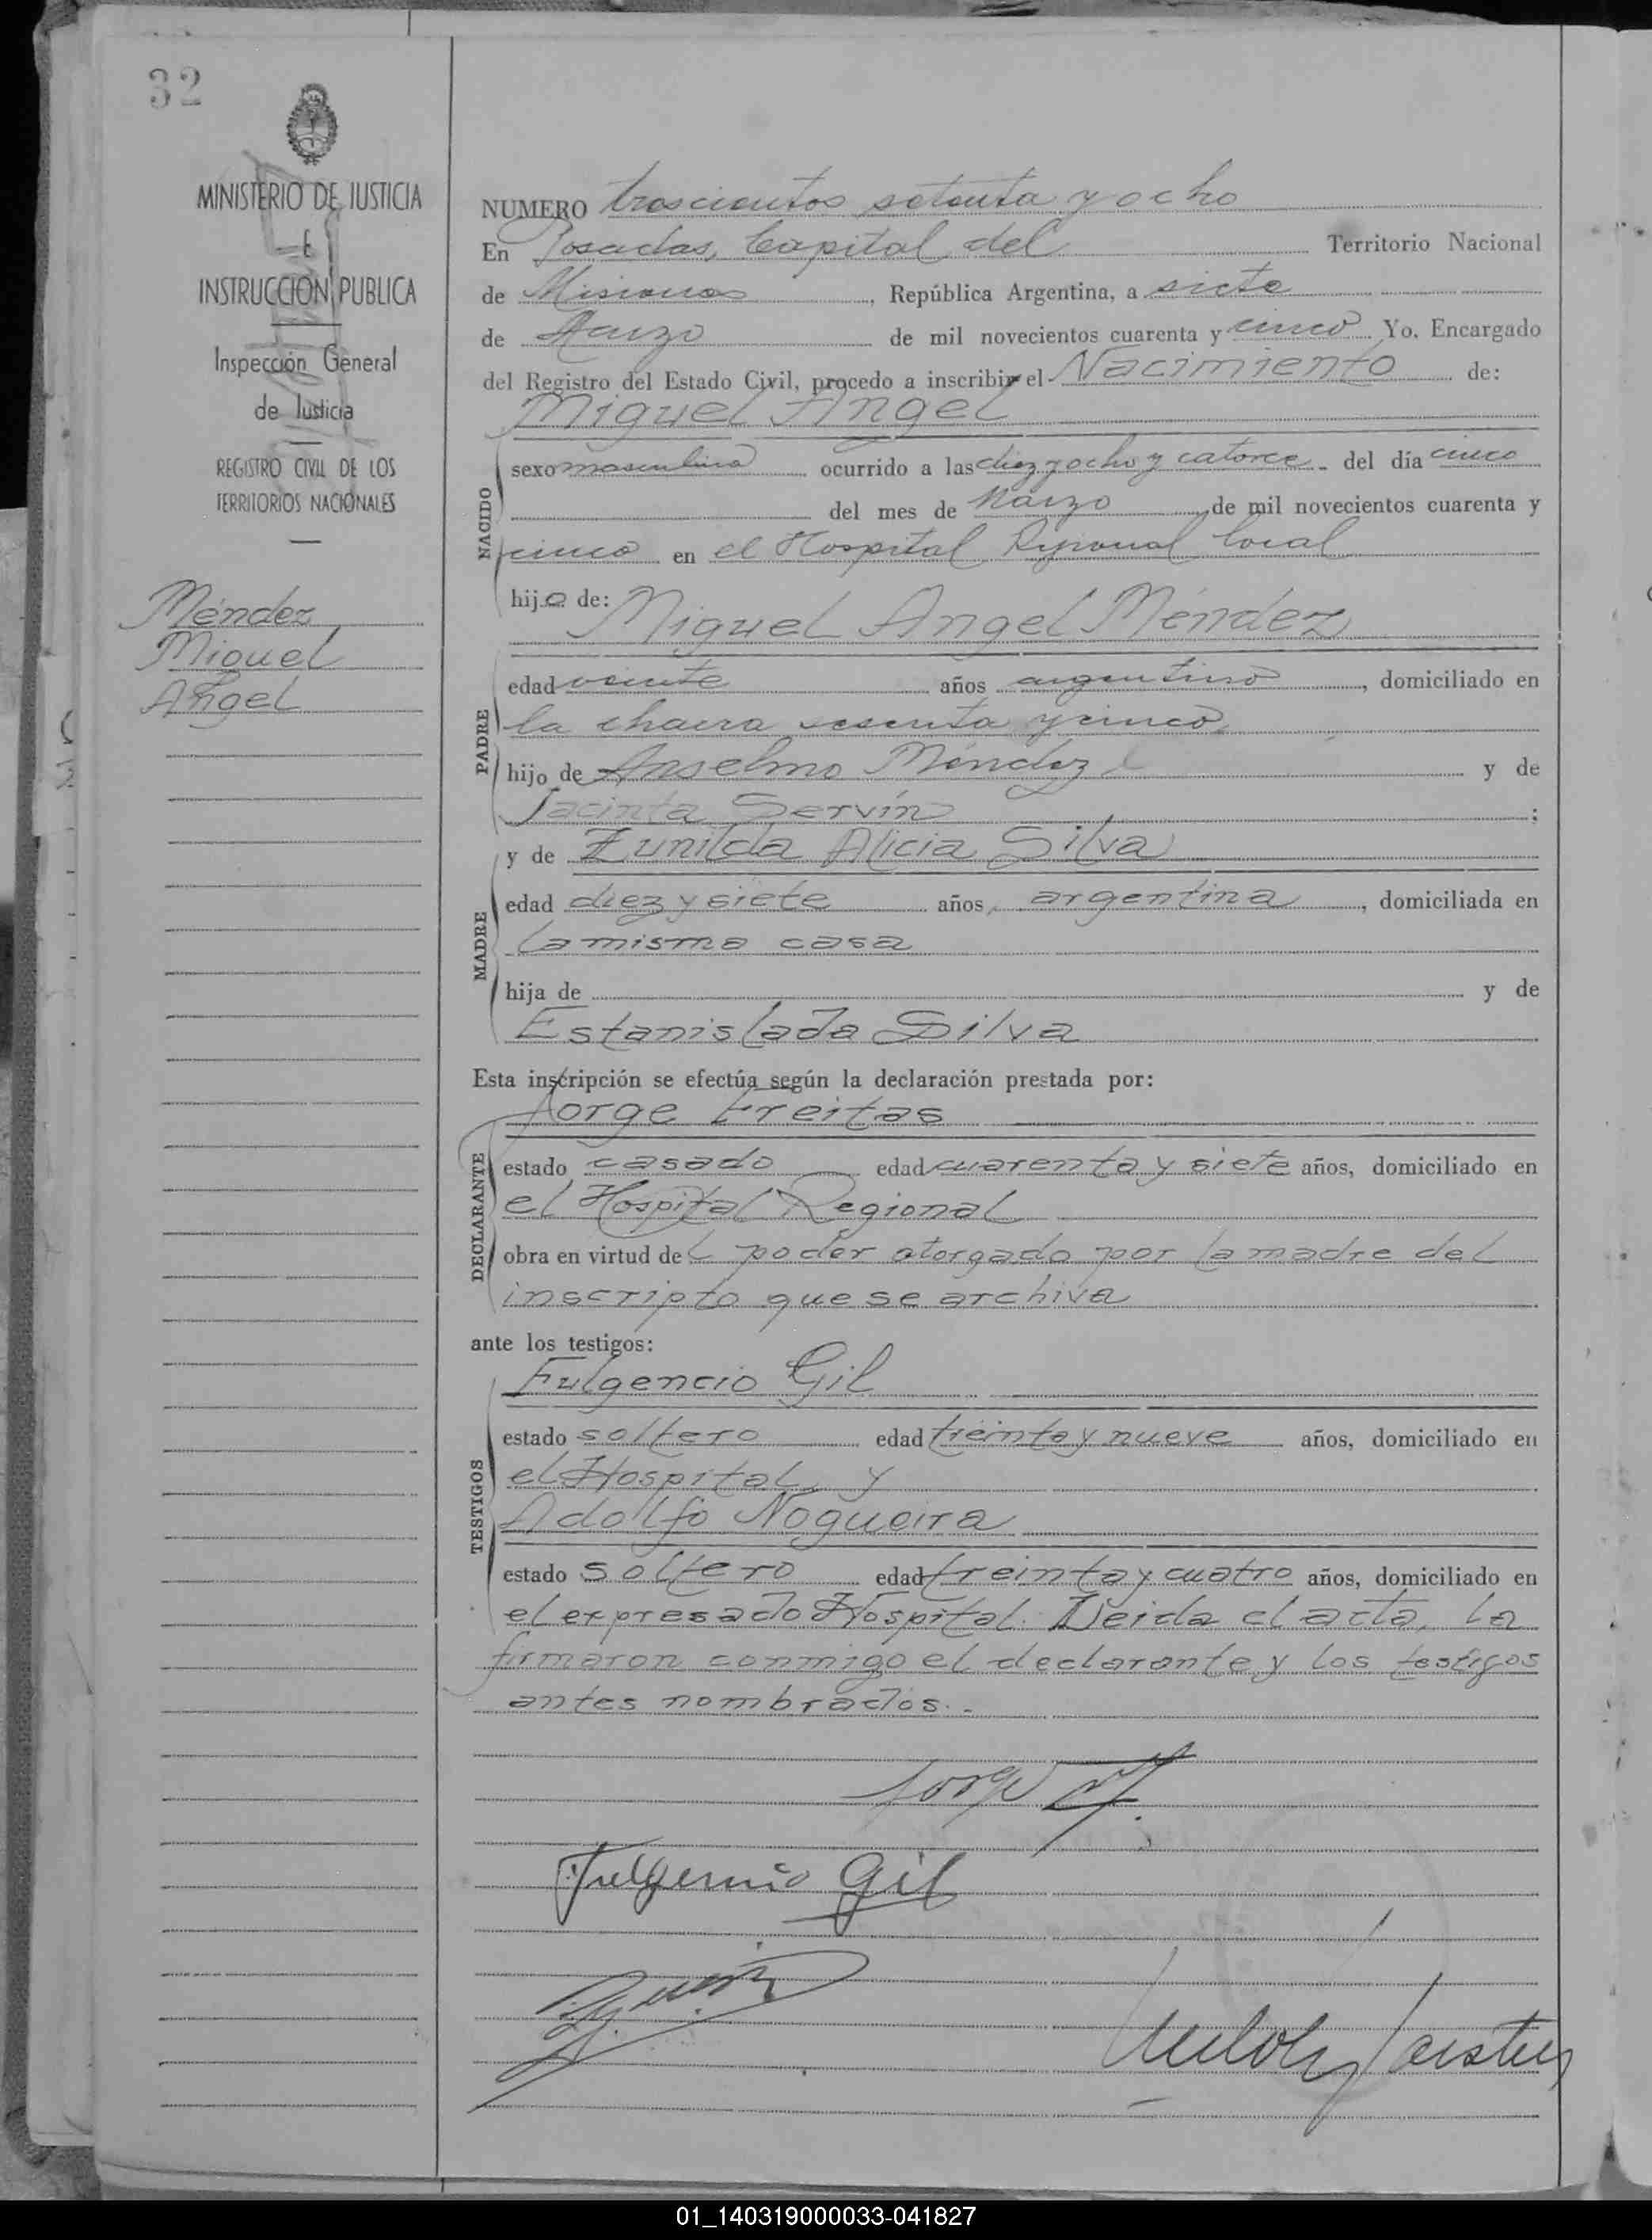 32
MINISTERIO DE JUSTICIA
E
INSTRUCCION PUBLICA
Inspección General
de Justicia
REGISTRO CIVIL DE LOS
TERRITORIOS NACIONALES
Méndez
Miguel
Angel
NUMERO trescientos setenta y ocho
En Posadas, Capital del Territorio Nacional
de Misiones, República Argentina, a siete
de Marzo de mil novecientos cuarenta y cinco Yo, Encargado
del Registro del Estado Civil, procedo a inscribir el Nacimiento de:
Miguel Angel
NACIDO
sexo masculino ocurrido a las diez y ocho y catorce del día cinco
del mes de Marzo, de mil novecientos cuarenta y
cinco en el Hospital Regional local
hijo de:
Miguel Angel Méndez
PADRE
edad veinte años argentino, domiciliado en
la chacra sesenta y cinco
hijo de Anselmo Méndez y de
Jacinta Servín;
y de Zunilda Alicia Silva
MADRE
edad diez y siete años, argentina, domiciliada en
la misma casa
hija de y de
Estanislada Silva
Esta inscripción se efectúa según la declaración prestada por:
Jorge Freitas
DECLARANTE
estado casado edad cuarenta y siete años, domiciliado en
el Hospital Regional
obra en virtud del poder otorgado por la madre del
inscripto que se archiva
ante los testigos:
Fulgencio Gil
TESTIGOS
estado soltero edad treinta y nueve años, domiciliado en
el Hospital y
Adolfo Nogueira
estado soltero edad treinta y cuatro años, domiciliado en
el expresado Hospital. Leida el acta, la
firmaron conmigo el declarante y los testigos
antes nombrados.-
Jorge
Fulgencio Gil
01_140319000033-041827